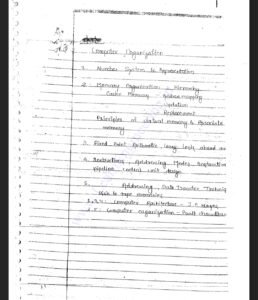 Computer Organisation
1. Number System & Representation
2. Memory Organisation - Hierarchy
Cache Memory - Address mapping
Updation
Replacement
Principles of virtual memory & Associate
memory
3. Fixed Point Arithmetic carry look ahead
4. Instructions, Addressing Modes, Instruction
pipeline control unit design
5. Data Transfer Technique
disk & tape
Computer Architecture - J.P. Hayes
Computer organisation - Pault choudhury